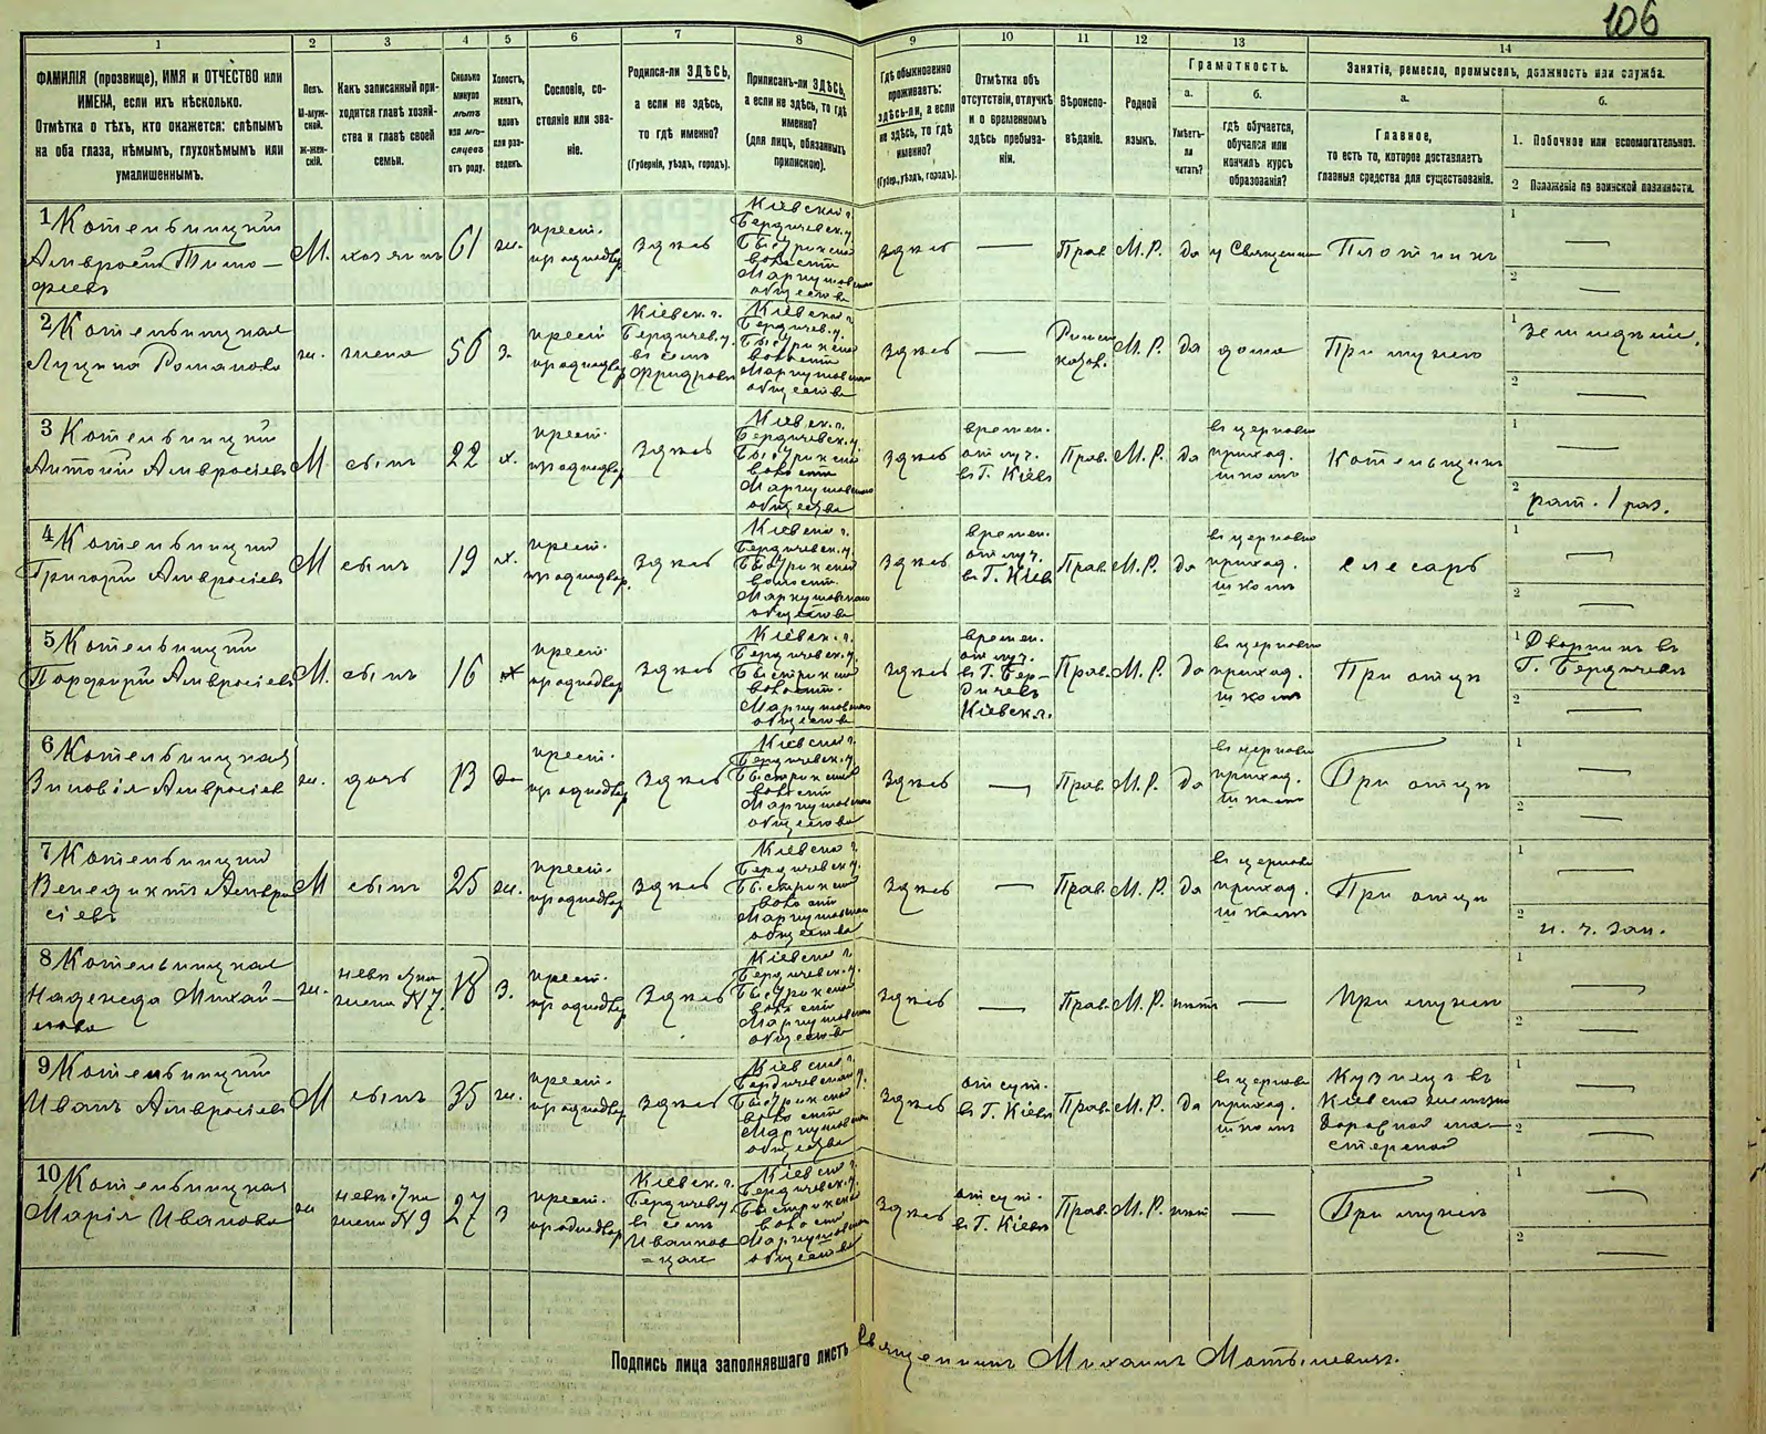 106
1 2 3 4 5 6 7 8 9 10 11 12 13 14
ФАМИЛІЯ (прозвище), ИМЯ и ОТЧЕСТВО или
ИМЕНА, если ихъ нѣсколько.
Отмѣтка о тѣхъ, кто окажется: слѣпымъ
на оба глаза, нѣмымъ, глухонѣмымъ или
умалишеннымъ.
Полъ.
М-муж-
ской.
Ж-жен-
скій.
Какъ записанный при-
ходится главѣ хозяй-
ства и главѣ своей
семьи.
Сколько
минуло
лѣтъ
или мѣ-
сяцевъ
отъ роду.
Холостъ,
женатъ,
вдовъ
или раз-
веденъ.
Сословіе, со-
стояніе или зва-
ніе.
Родился-ли ЗДѢСЬ,
а если не здѣсь,
то гдѣ именно?
(Губернія, уѣздъ, городъ).
Приписанъ-ли ЗДѢСЬ,
а если не здѣсь, то гдѣ
именно?
(для лицъ, обязанныхъ
припискою).
Гдѣ обыкновенно
проживаетъ:
здѣсь-ли, а если
не здѣсь, то гдѣ
именно?
(Губер., уѣздъ, городъ).
Отмѣтка объ
отсутствіи, отлучкѣ
и о временномъ
здѣсь пребыва-
ніи.
Вѣроиспо-
вѣданіе.
Родной
языкъ.
Грамотность.
а.
Умѣетъ-
ли
читать?
б.
гдѣ обучается,
обучался или
кончилъ курсъ
образованія?
Занятіе, ремесло, промыселъ, должность или служба.
а.
Главное,
то есть то, которое доставляетъ
главныя средства для существованія.
б.
1. Побочное или вспомогательное.
2 Положеніе по воинской повинности.
1 Котельницкий
Амвросій Тимо-
феевъ
М.
хозяинъ
61
ж.
крест.
здѣсь
Кіевской г.
Бердичев. у.
волости
общества
здѣсь
—
Прав.
М.Р.
да
у Священни
Плотникъ
1 —
2 —
2 Котельницкая
Романова
ж.
жена
56
з.
крест
Кіевск. г.
Бердичев. у.
въ селѣ
Кіевской г.
Бердичев. у.
волости
общества
здѣсь
—
М.Р.
да
дома
При мужѣ
1 земледѣліе.
2 —
3 Котельницкій
Антоній Амвросіевъ
М
сынъ
22
х.
крест.
здѣсь
Кіевск. г.
Бердичевск. у.
волости
общества
здѣсь
времен.
отлуч.
въ Г. Кіевъ
Прав.
М.Р.
да
въ церковн
приход.
школѣ
Котельщикъ
1 —
2 рат. 1 раз.
4 Котельницкій
Григорій Амвросіевъ
М
сынъ
19
х.
крест.
здѣсь
Кіевской г.
Бердичевск. у.
волости.
общества
здѣсь
времен.
отлуч.
въ Г. Кіев
Прав.
М.Р.
да
въ церковно
приход.
школѣ
слесарь
1 —
2 —
5 Котельницкій
Порфирій Амвросіевъ
М.
сынъ
16
х
крест.
здѣсь
Кіевск. г.
Бердичевск. у.
волост.
общества
здѣсь
времен.
отлуч.
въ Г. Бер-
дичевъ
Кіевск. г.
Прав.
М.Р.
да
въ церковно
приход.
школѣ
При отцѣ
1 Дворникъ въ
Г. Бердичевѣ
2 —
6 Котельницкая
Зиновія Амвросіев
ж.
дочь
13
крест.
здѣсь
Кіевской г.
Бердичевск. у.
волости
общества
здѣсь
—
Прав.
М.Р.
да
въ церковн
приход.
школѣ
При отцѣ
1 —
2 —
7 Котельницкій
Венедиктъ Амвро
сіевъ
М
сынъ
25
ж.
крест.
здѣсь
Кіевской г.
Бердичевск. у.
волости
общества
здѣсь
—
Прав.
М.Р.
да
въ церковн
приход.
школѣ
При отцѣ
1 —
2 н. ч. зап.
8 Котельницкая
Надежда Михай-
лова
ж.
невѣстка
жена N 7.
18
з.
крест.
здѣсь
Кіевской г.
Бердичевск. у.
волости
общества
здѣсь
—
Прав.
М.Р.
нѣтъ
—
При мужѣ
1 —
2 —
9 Котельницкій
Иванъ Амвросіевъ
М
сынъ
35
ж.
крест.
здѣсь
Кіевской г.
Бердичевской у.
волости
общества
здѣсь
отсут.
въ Г. Кіевъ
Прав.
М.Р.
да
въ церковн
приход.
школѣ
Кузнецъ въ
Кіевской желѣзно
дорожной ма-
стерской
1 —
2 —
10 Котельницкая
Марія Иванова
ж
невѣстка
жена N 9
27
з
крест.
Кіевск. г.
Бердичев. у.
въ селѣ
Кіевской г.
Бердичевск. у.
волости
общества
здѣсь
отсут.
въ Г. Кіевъ
Прав.
М.Р.
нѣт
—
При мужѣ
1 —
2 —
Подпись лица заполнявшаго листъ Священникъ Михаилъ